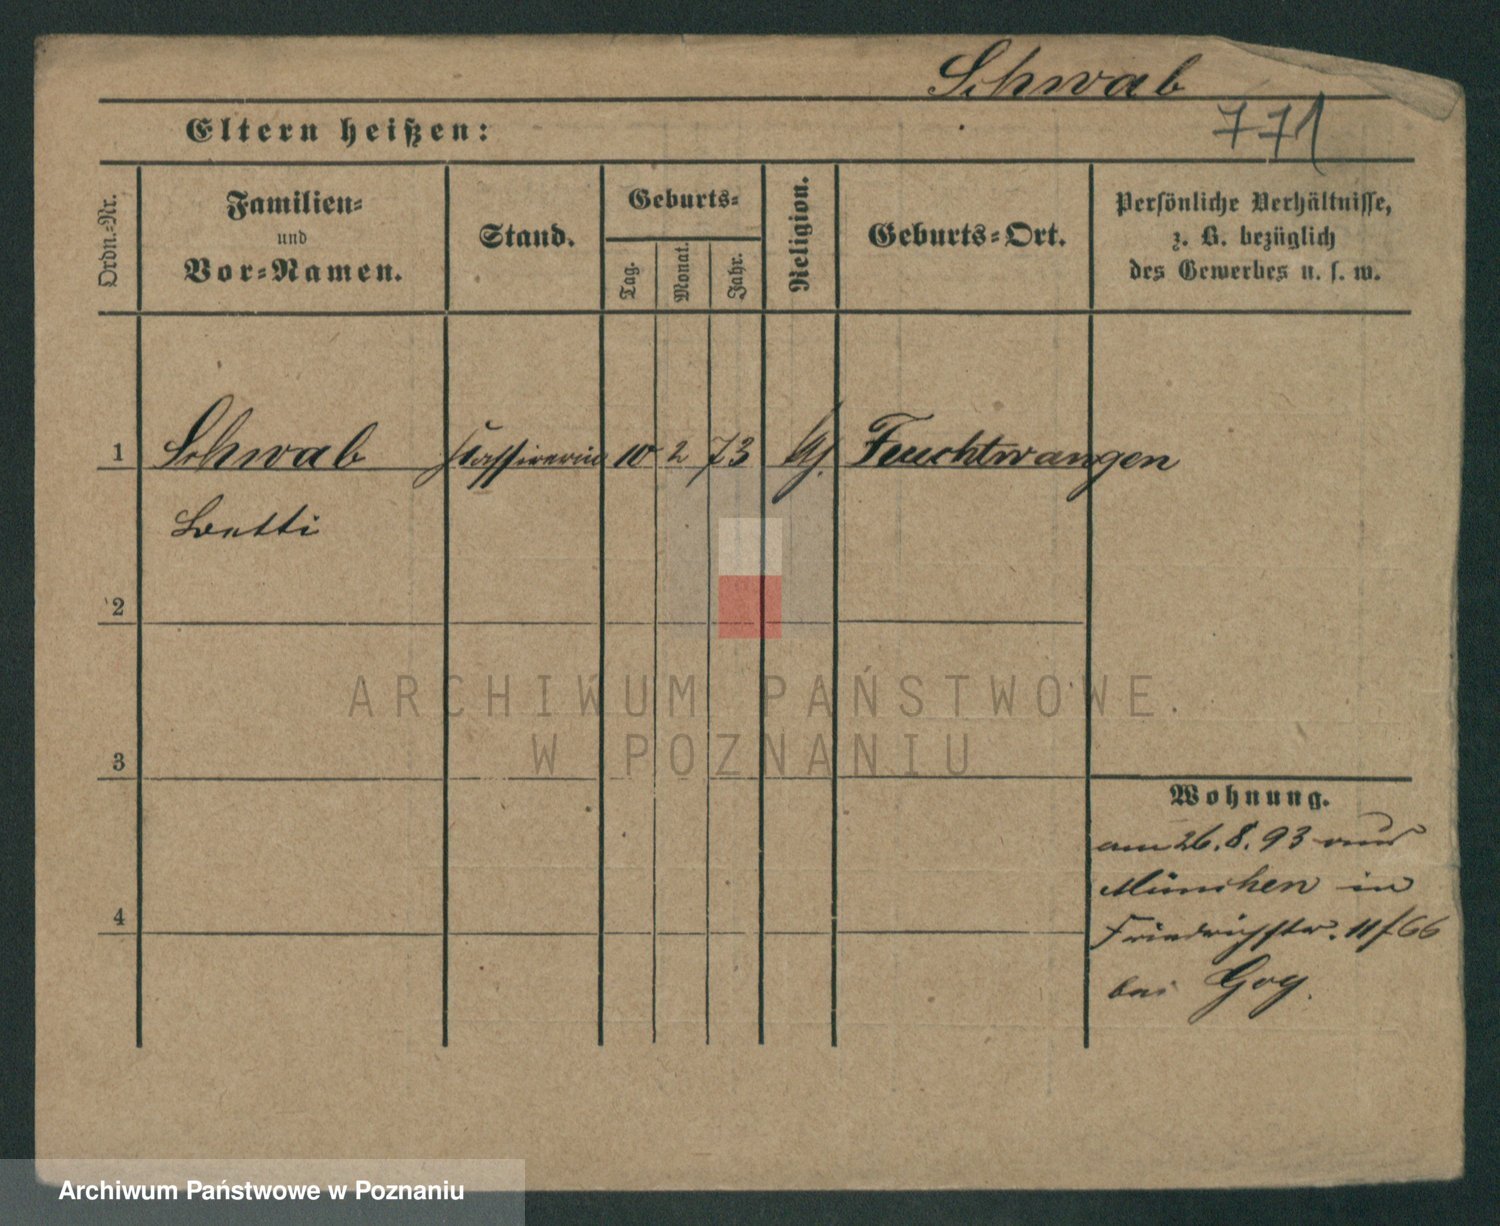 Schwab
Eltern heißen:
771
Ordn.-Nr.
Familien-
und
Vor-Namen.
Stand.
Geburts-
Tag.
Monat.
Jahr.
Religion.
Geburts-Ort.
Persönliche Verhältnisse,
z. B. bezüglich
des Gewerbes u. s. w.
1 Schwab Kassirerin 10 2 73 Feuchtwangen
Betti
2
ARCHIWUM PAŃSTWOWE
W POZNANIU
3
Wohnung.
am 26. 8. 93 aus
München in
4
Friedrichstr. 11/66
bei
Archiwum Państwowe w Poznaniu